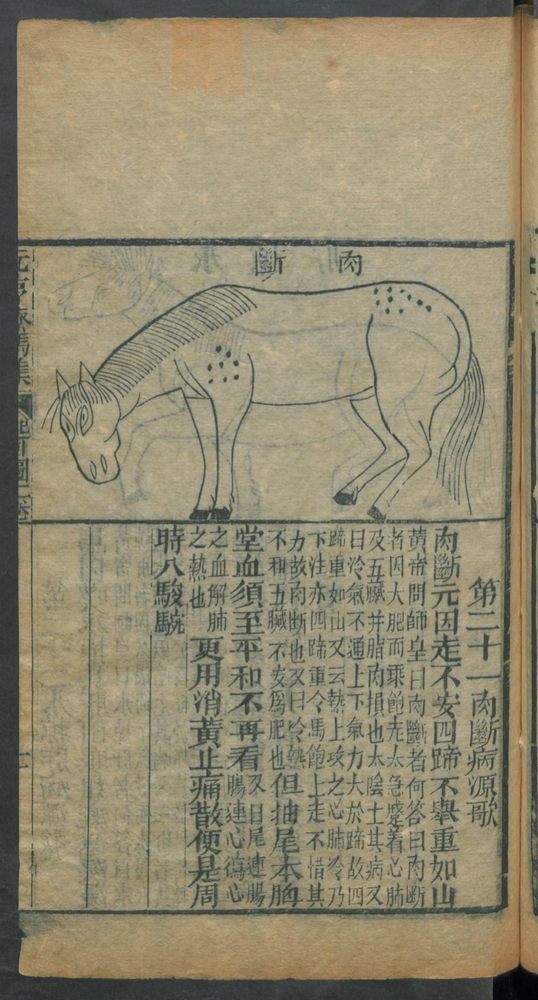 肉斷
第二十一肉斷病源歌
肉斷元因走不安四蹄不舉重如山
黃帝問師皇曰肉斷者何答曰肉斷
者因大肥而乗飽走太急蹙着心肺
及五臟并脂肉損也太陰土其病又
曰冷氣不通上下氣力大於蹄故四
蹄重如山又云熱上攻之心肺冷乃
下注亦四蹄重令馬飽上走不惜其
力故肉斷也又曰冷熱
不和五臟不安爲肥也
但抽尾本胸
堂血須至平和不再看
又曰尾連腸
腸連心瀉心
之血解肺
之熱也
更用消黃止痛散便是周
時八駿駹